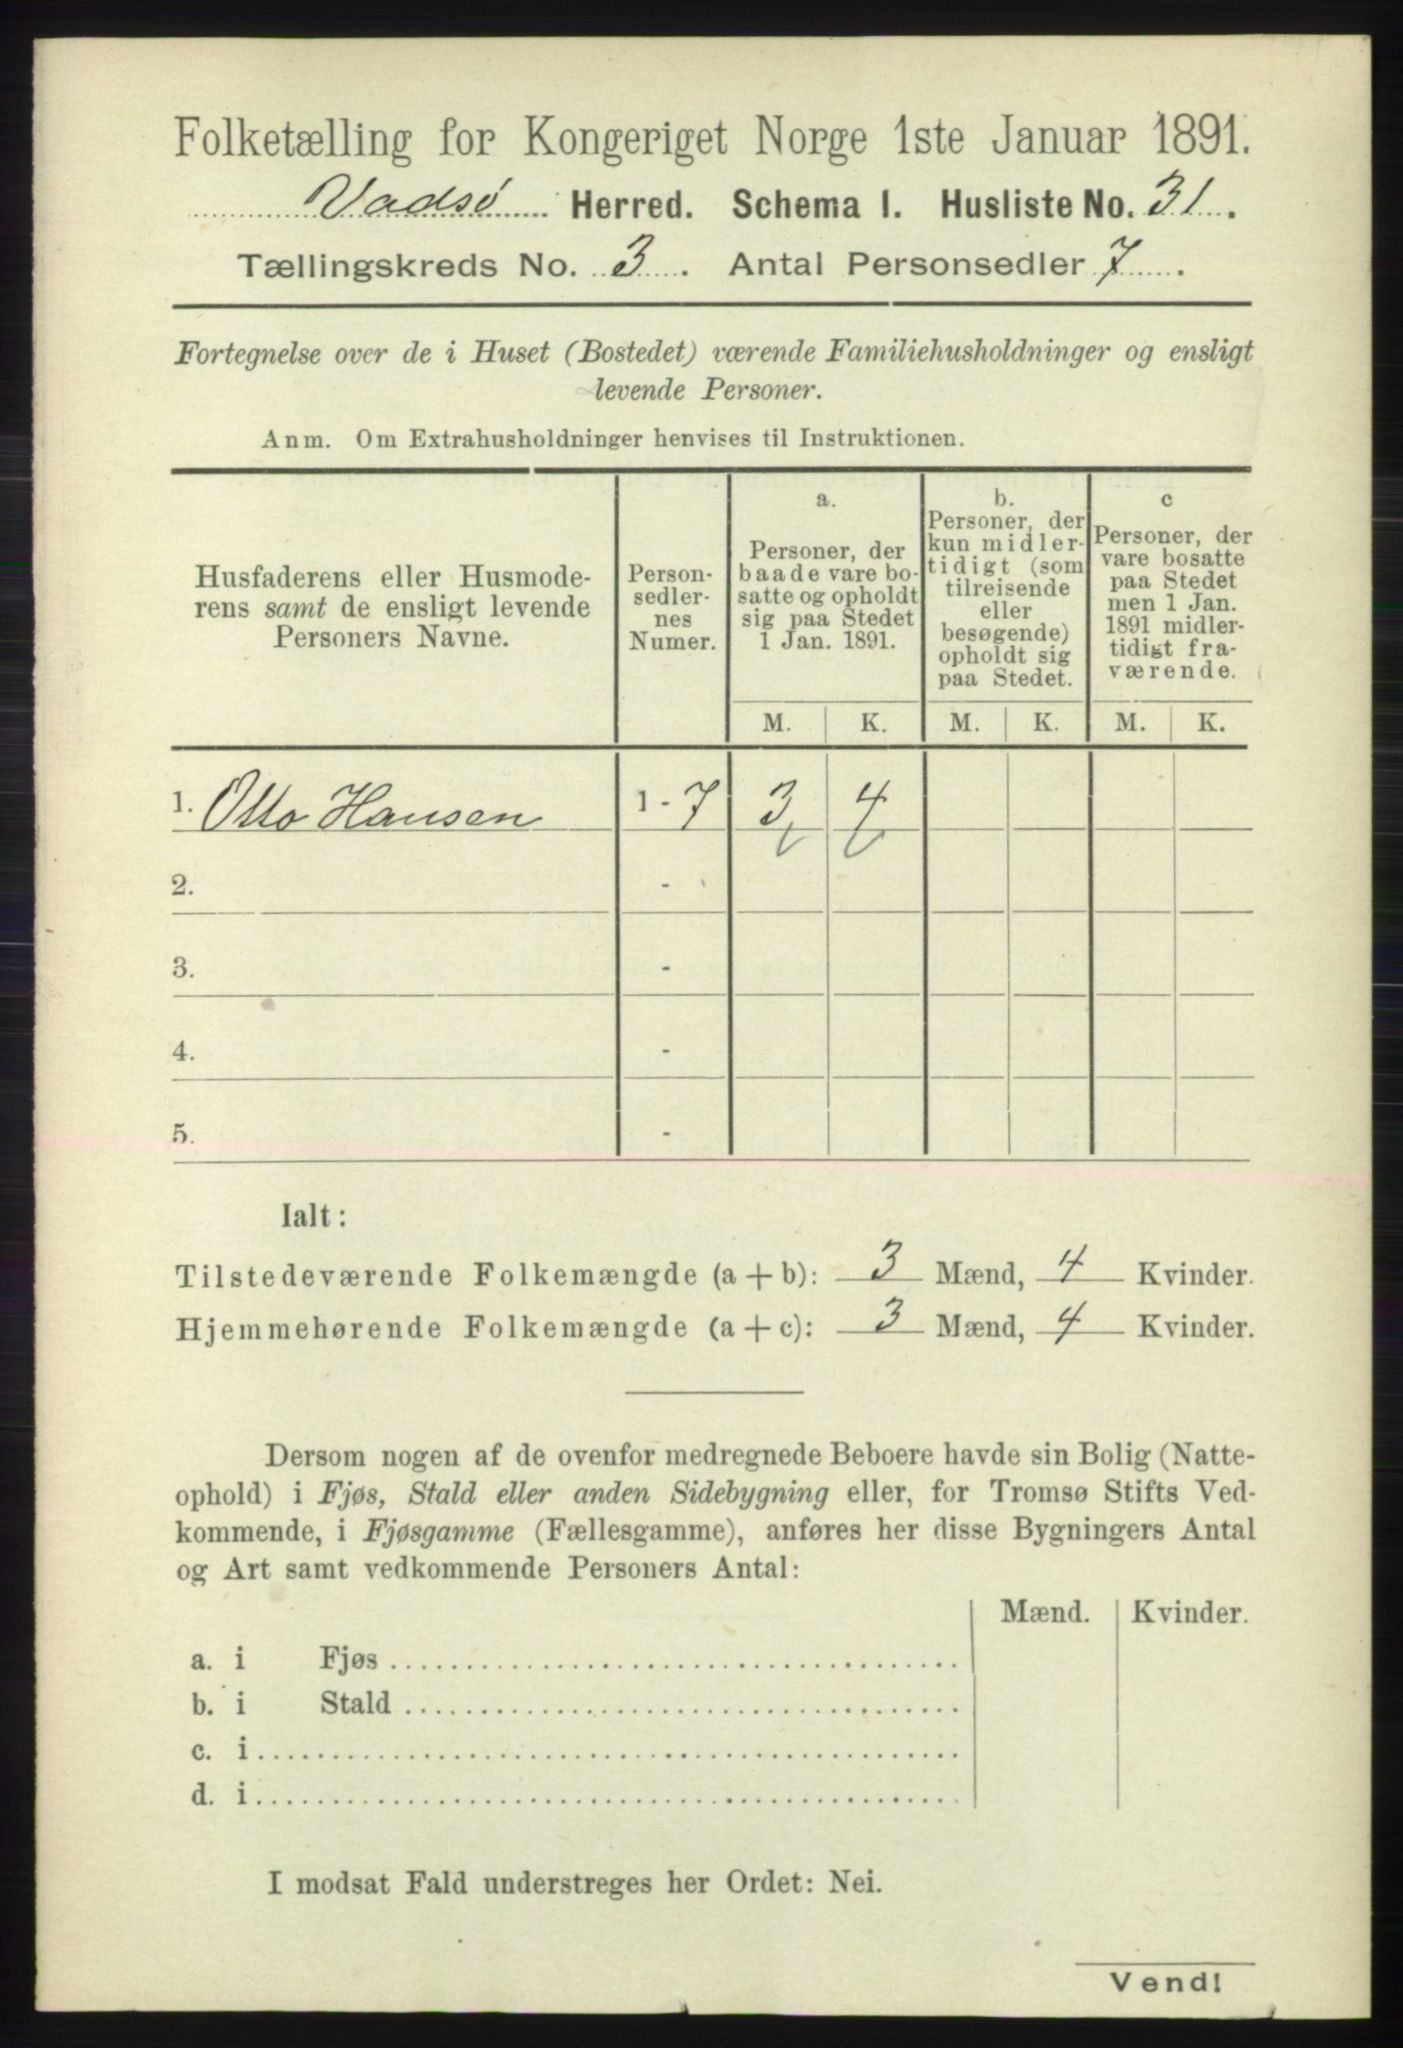 Folketælling for Kongeriget Norge 1ste Januar 1891.
Vadsø Herred. Schema I. Husliste No. 31.
Tællingskreds No. 3. Antal Personsedler 7.
Fortegnelse over de i Huset (Bostedet) værende Familiehusholdninger og ensligt
levende Personer.
Anm. Om Extrahusholdninger henvises til Instruktionen.
Husfaderens eller Husmode-
rens samt de ensligt levende
Personers Navne.
Person-
sedler-
nes
Numer.
a.
Personer, der
baade vare bo-
satte og opholdt
sig paa Stedet
1 Jan. 1891.
b.
Personer, der
kun midler-
tidigt (som
tilreisende
eller
besøgende)
opholdt sig
paa Stedet.
c
Personer, der
vare bosatte
paa Stedet
men 1 Jan.
1891 midler-
tidigt fra-
værende.
M. K. M. K. M. K.
1. Otto Hansen 1 - 7 3 4
2. -
3. -
4. -
5. -
Ialt:
Tilstedeværende Folkemængde (a + b): 3 Mænd, 4 Kvinder.
Hjemmehørende Folkemængde (a + c): 3 Mænd, 4 Kvinder.
Dersom nogen af de ovenfor medregnede Beboere havde sin Bolig (Natte-
ophold) i Fjøs, Stald eller anden Sidebygning eller, for Tromsø Stifts Ved-
kommende, i Fjøsgamme (Fællesgamme), anføres her disse Bygningers Antal
og Art samt vedkommende Personers Antal:
Mænd. Kvinder.
a. i Fjøs
b. i Stald
c. i
d. i
I modsat Fald understreges her Ordet: Nei.
Vend!